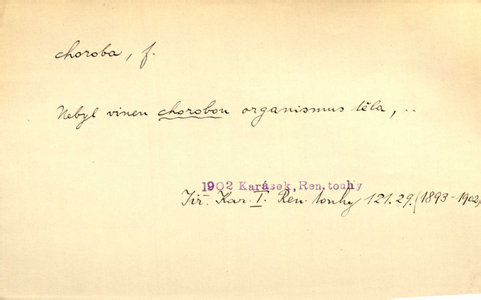 choroba, f.
Nebyl vinen chorobou organismus těla, ..
1902 Karásek, Ren.touhy
Jiř. Kar. I. Ren. touhy 121.29.(1893-1902)